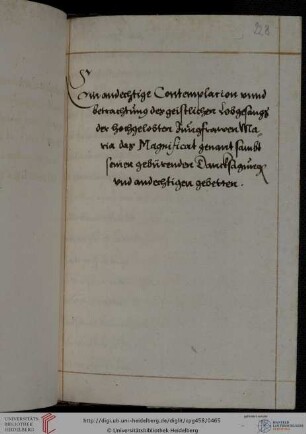 228
Ein andechtige Contemplacion vnnd
betrachtung des geistlichen Lobgesangs
der hochgelobten Jungfrawen Ma-
ria das Magnificat genant sambt
seinen gebürenden Dancksagung
vnd andechtigen gebetten.
UNIVERSITÄTS-
BIBLIOTHEK
HEIDELBERG
http://digi.ub.uni-heidelberg.de/diglit/cpg458/0465
© Universitätsbibliothek Heidelberg